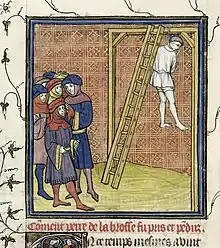 Coment pierre de la broſſe fu pris et pendu.
En ce temps meiſmes avint